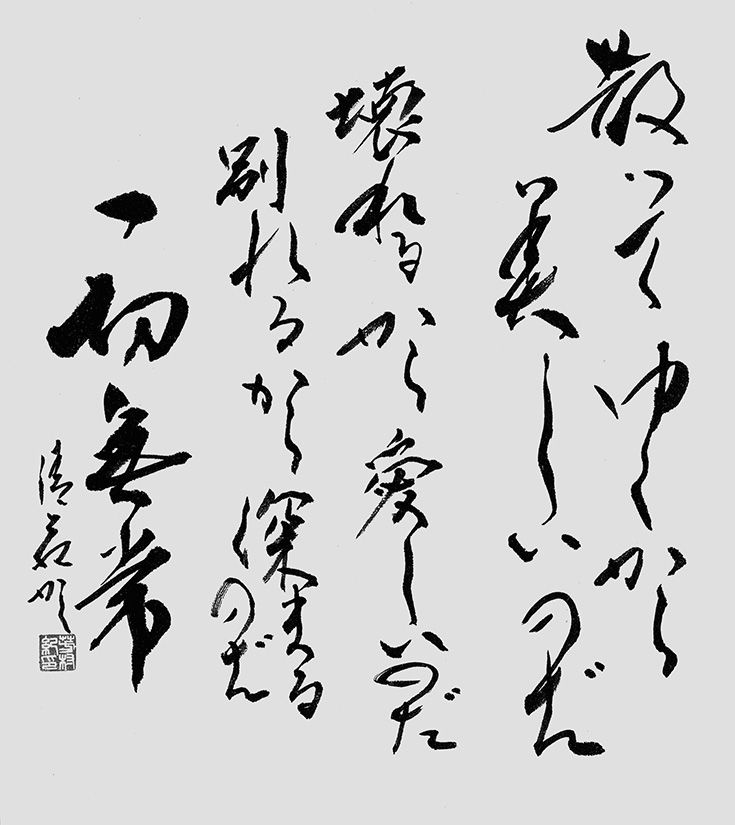 散ってゆくから
美しいのだ
壊れるから愛しいのだ
別れるから深まるのだ
一切無常